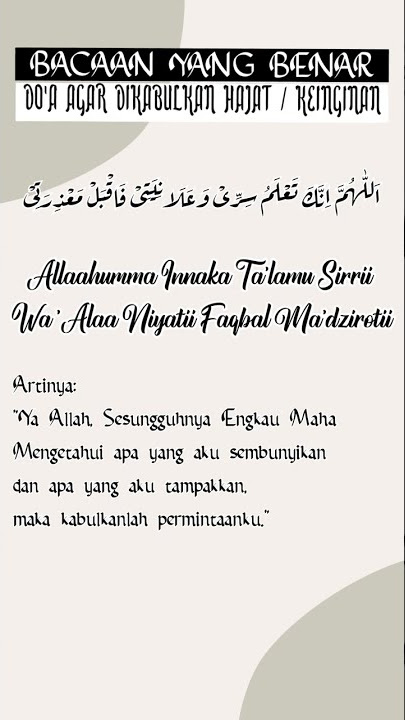 BACAAN YANG BENAR
DO'A AGAR DIKABULKAN HAJAT / KEINGINAN
اَللّٰهُمَّ اِنَّكَ تَعْلَمُ سِرِّىْ وَعَلَا نِيَتِىْ فَاقْبَلْ مَعْذِرَتِىْ
Allaahumma Innaka Ta'lamu Sirrii
Wa' Alaa Niyatii Faqbal Ma'dzirotii
Artinya:
"Ya Allah, Sesungguhnya Engkau Maha
Mengetahui apa yang aku sembunyikan
dan apa yang aku tampakkan,
maka kabulkanlah permintaanku."